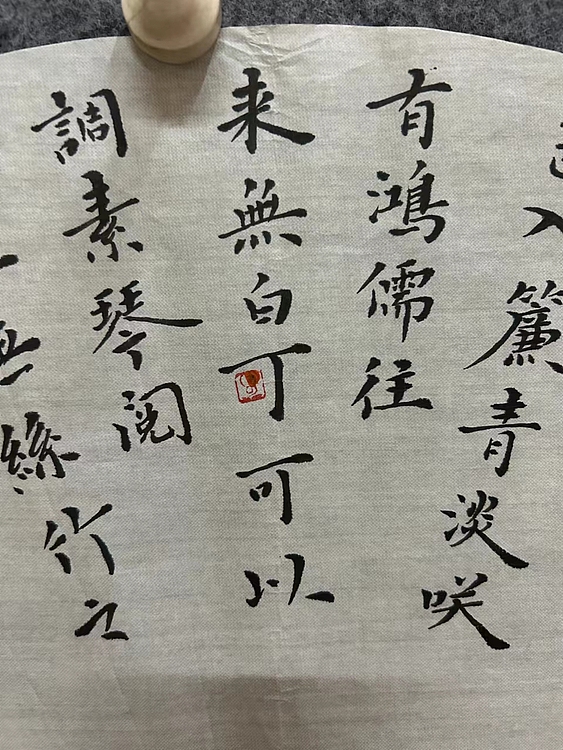 入簾青淡咲
有鴻儒往
来無白丁可以
調素琴閱
無絲竹之